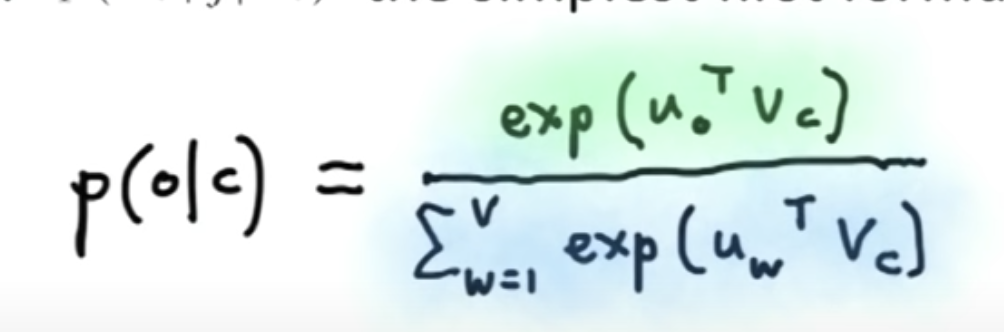 the simplest first formu
p(o|c) = exp(u_o^T v_c) / Σ_{w=1}^V exp(u_w^T v_c)